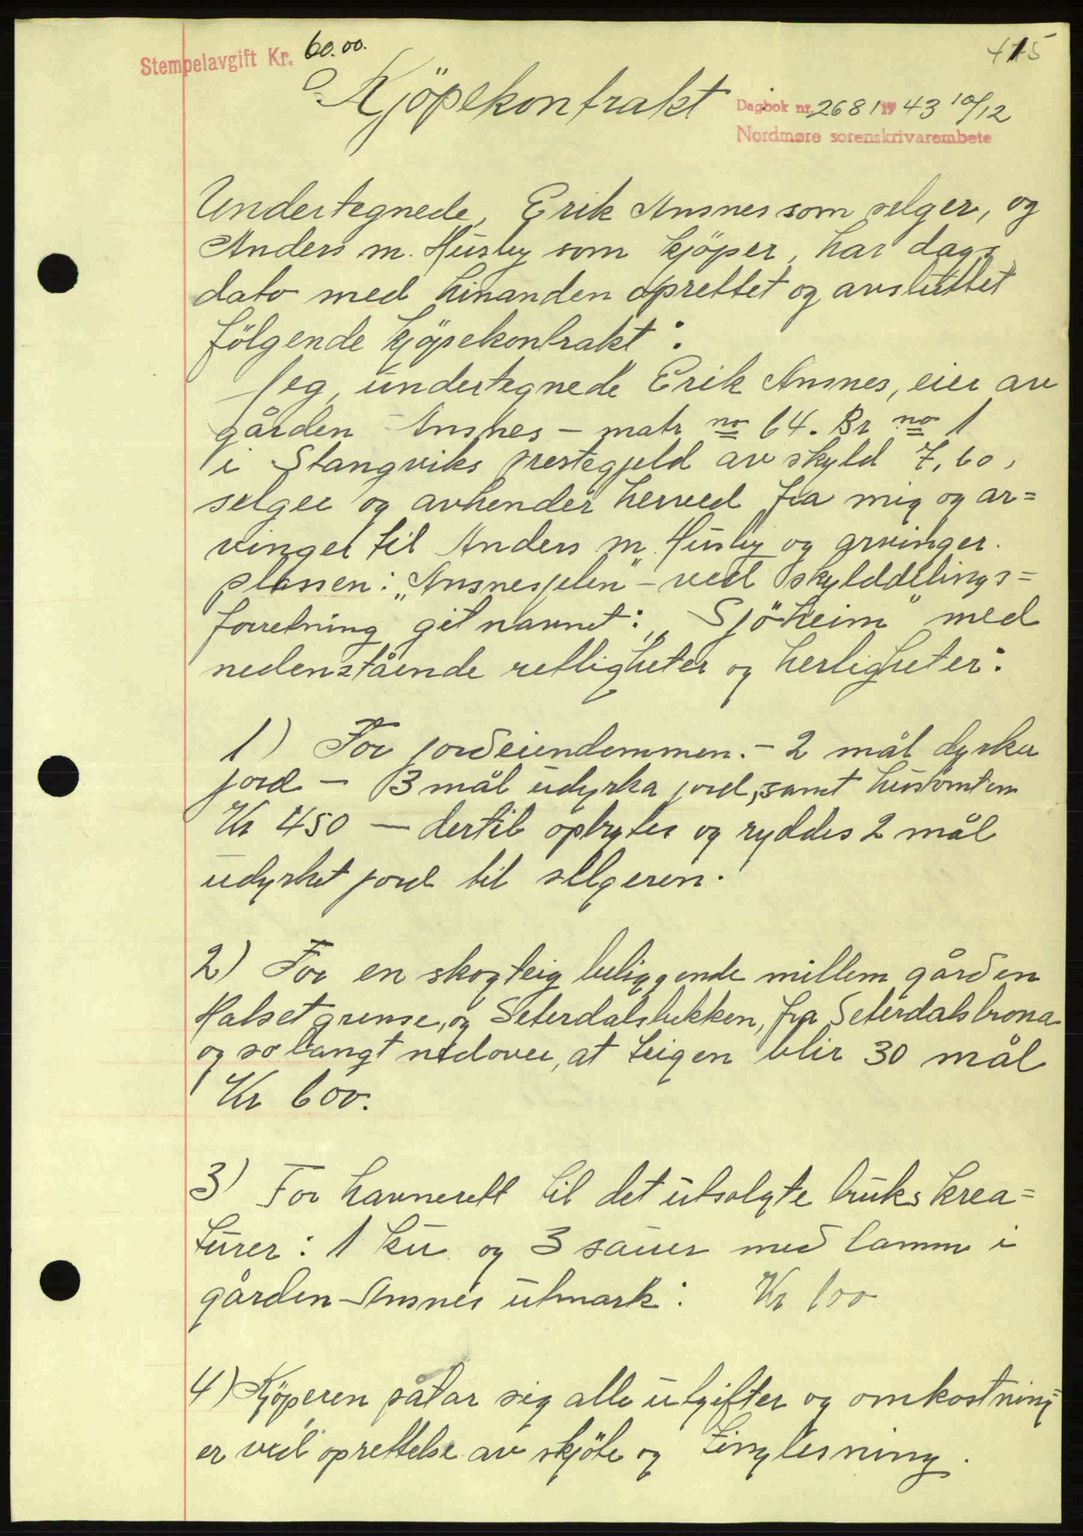 Stempelavgift Kr. 60.00.
475
Kjöpekontrakt
Dagbok nr. 2681 1943 10/12
Nordmøre sorenskrivarembete
Undertegnede, Erik Ansnes som selger, og
Anders M. Husby som kjöper, har dags
dato med hinanden oprettet og avsluttet
følgende kjöpekontrakt:
Jeg, undertegnede Erik Ansnes, eier av
gården Ansnes – matr no 64. Br no 1
i Stangviks prestegjeld av skyld 7,60,
selger og avhender herved fra mig og ar=
vinger til Anders M. Husby og arvinger.
plassen: „Ansnesjelen" – ved skylddelings=
forretning git navnet: „Sjöheim" med
nedenstående rettigheter og herligheter:
1) For jordeiendommen. – 2 mål dyrka
jord – 3 mål udyrka jord, samt hustomten
Kr 450 – dertil opbrytes og ryddes 2 mål
udyrket jord til selgeren.
2) For en skogteig beliggende millem gården
Halset grense, og Seterdalsbekken, fra Seterdalsbrona
og so langt nedover, at teigen blir 30 mål
Kr 600.
3) For havnerett til det utsolgte bruks krea=
turer: 1 ku og 3 sauer med lamm i
gården Ansnes utmark: Kr 100
4) Kjöperen påtar sig alle utgifter og omkostning=
er ved oprettelse av skjöte og tinglesning.